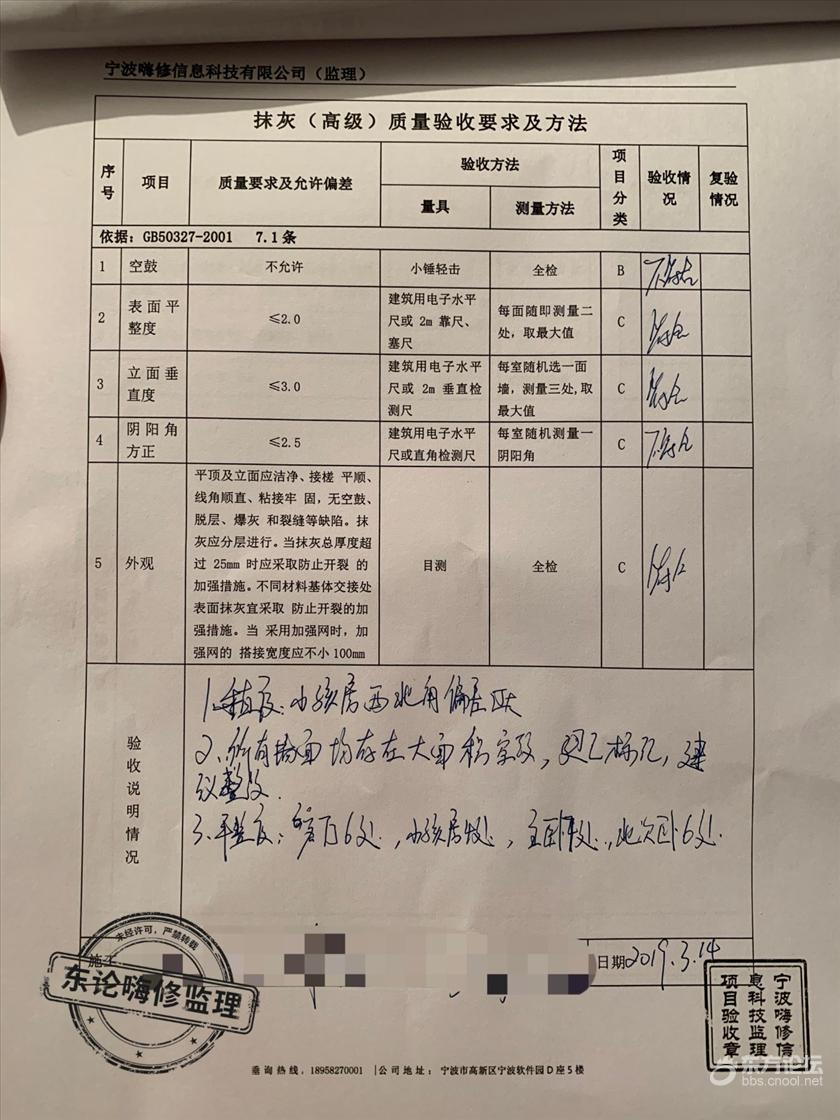 宁波嗨修信息科技有限公司（监理）
抹灰（高级）质量验收要求及方法
序号 项目 质量要求及允许偏差 验收方法 项目分类 验收情况 复验情况
量具 测量方法
依据：GB50327-2001 7.1条
1 空鼓 不允许 小锤轻击 全检 B 不符合
2 表面平整度 ≤2.0 建筑用电子水平尺或 2m 靠尺、塞尺 每面随即测量二处，取最大值 C 符合
3 立面垂直度 ≤3.0 建筑用电子水平尺或 2m 垂直检测尺 每室随机选一面墙，测量三处,取最大值 C 符合
4 阴阳角方正 ≤2.5 建筑用电子水平尺或直角检测尺 每室随机测量一阴阳角 C 不符合
5 外观
平顶及立面应洁净、接槎 平顺、
线角顺直、粘接牢 固，无空鼓、
脱层、爆灰 和裂缝等缺陷。抹
灰应分层进行。当抹灰总厚度超
过 25mm 时应采取防止开裂 的
加强措施。不同材料基体交接处
表面抹灰宜采取 防止开裂的加
强措施。当 采用加强网时，加
强网的 搭接宽度应不小100mm
目测 全检 C 符合
验收说明情况
1.垂直度：小孩房西北角偏差
2、所有墙面均存在大面积空鼓，已标记，建
议整改.
3.平整度：6处，小孩房处，主卧处，北次卧6处.
施工
日期2019.3.14
未经许可，严禁转载
东论嗨修监理
宁波嗨修信
息科技监理
项目验收章
垂询热线：18958270001 |公司地址：宁波市高新区宁波软件园D座5楼
东方论坛
bbs.cnool.net